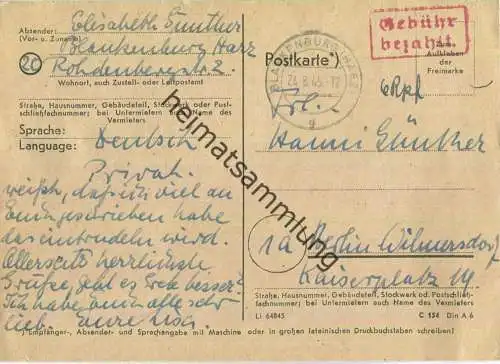 Absender:
(Vor- u. Zuname)
Elisabeth Günther
Blankenburg Harz
Rohdenbergstr. 2
Wohnort, auch Zustell- oder Leitpostamt
Straße, Hausnummer, Gebäudeteil, Stockwerk oder Post-
schließfachnummer; bei Untermietern auch Name des
Vermieters
Sprache: Deutsch
Language:
Privat.
weißt, daß ich viel an
Euch geschrieben habe
das eintrudeln wird.
Allerseits herzlichste
Grüße, geht es besser?
Ich habe Euch alle sehr
lieb. Eure
Empfänger-, Absender- und Sprachangabe mit Maschine oder in großen lateinischen Druckbuchstaben schreiben!
Postkarte
BLANKENBURG (HARZ)
24.8.45.-12
g
Gebühr
bezahlt
Zum
Aufkleben
der
Freimarke
6 Rpf
Frl.
Hanni Günther
1a Berlin Wilmersdorf
Kaiserplatz 14
Straße, Hausnummer, Gebäudeteil, Stockwerk od. Postschließ-
fachnummer; bei Untermietern auch Name des Vermieters
Li 64845 C 154 Din A 6
heimatsammlung